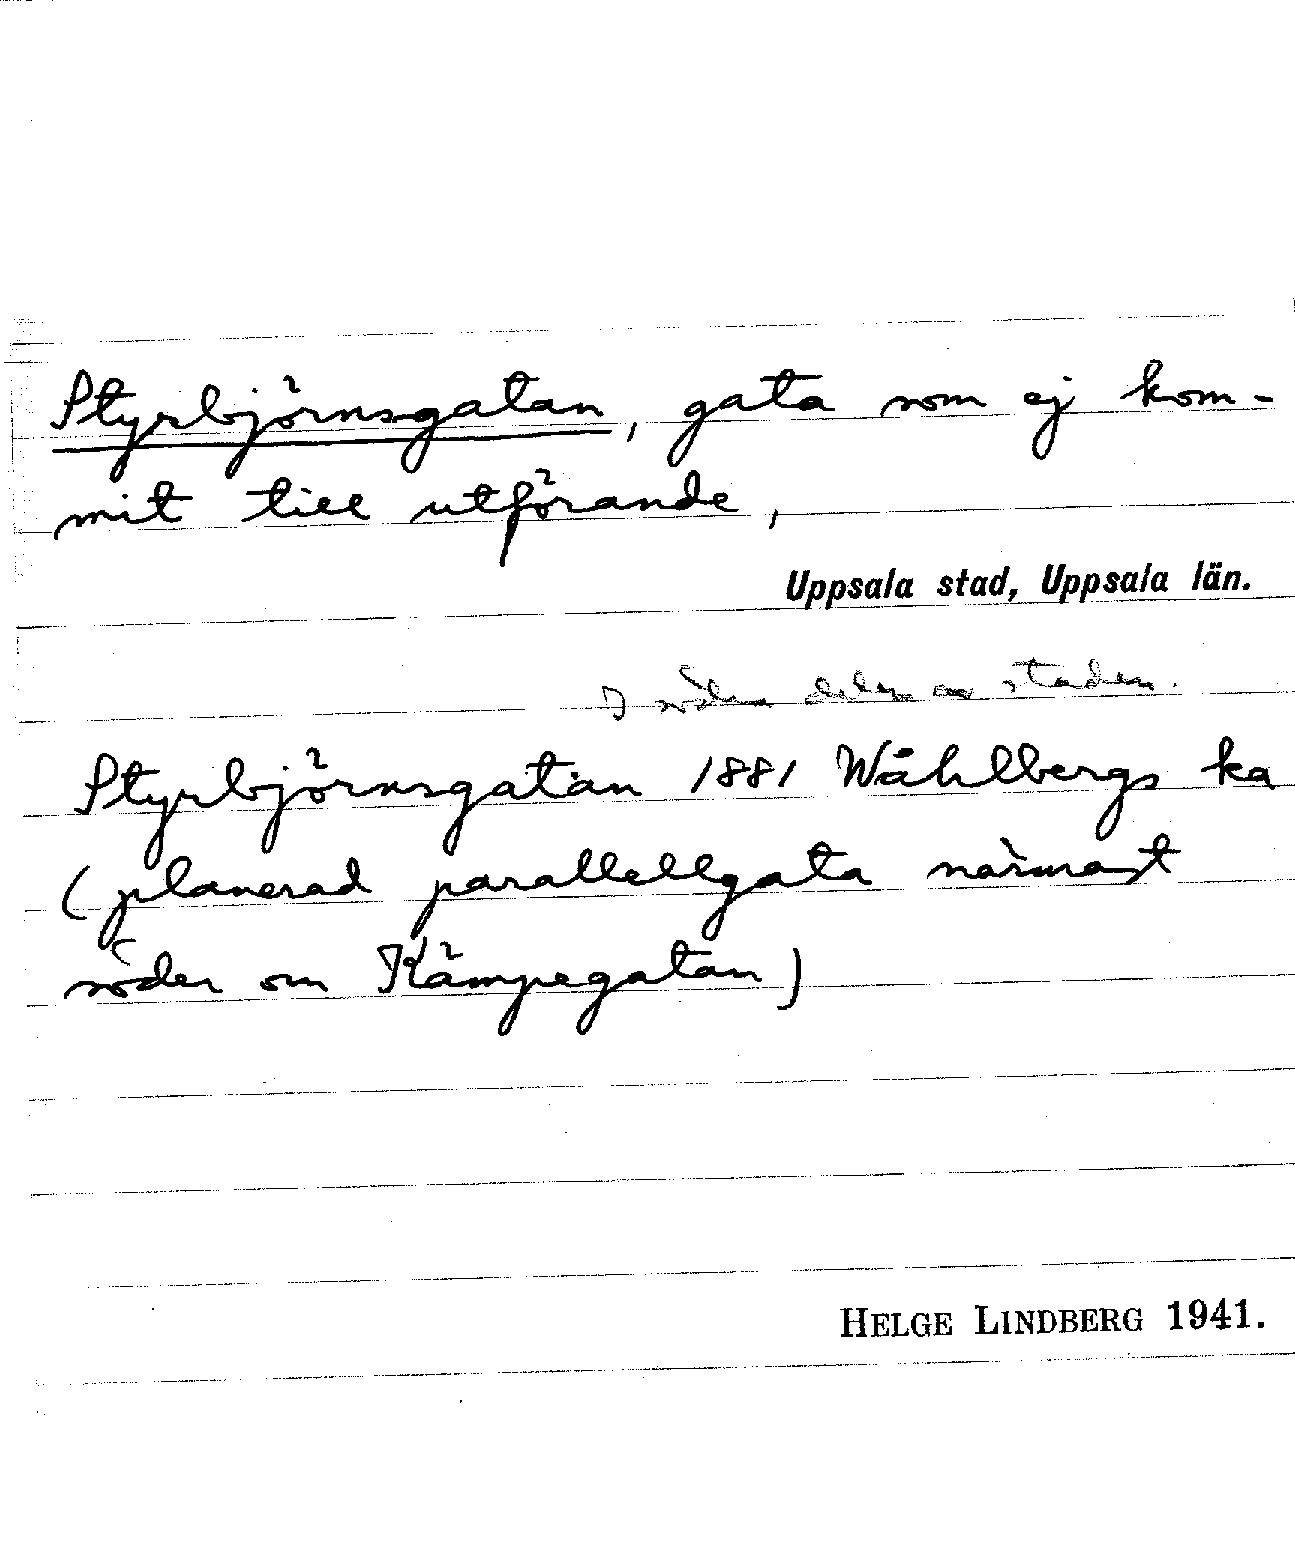 Styrbjörnsgatan, gata som ej kom-
mit till utförande,
Uppsala stad, Uppsala län.
I södra delen av staden.
Styrbjörnsgatan 1881 Wåhlbergs ka
(planerad parallellgata närmast
söder om Kämpegatan)
HELGE LINDBERG 1941.